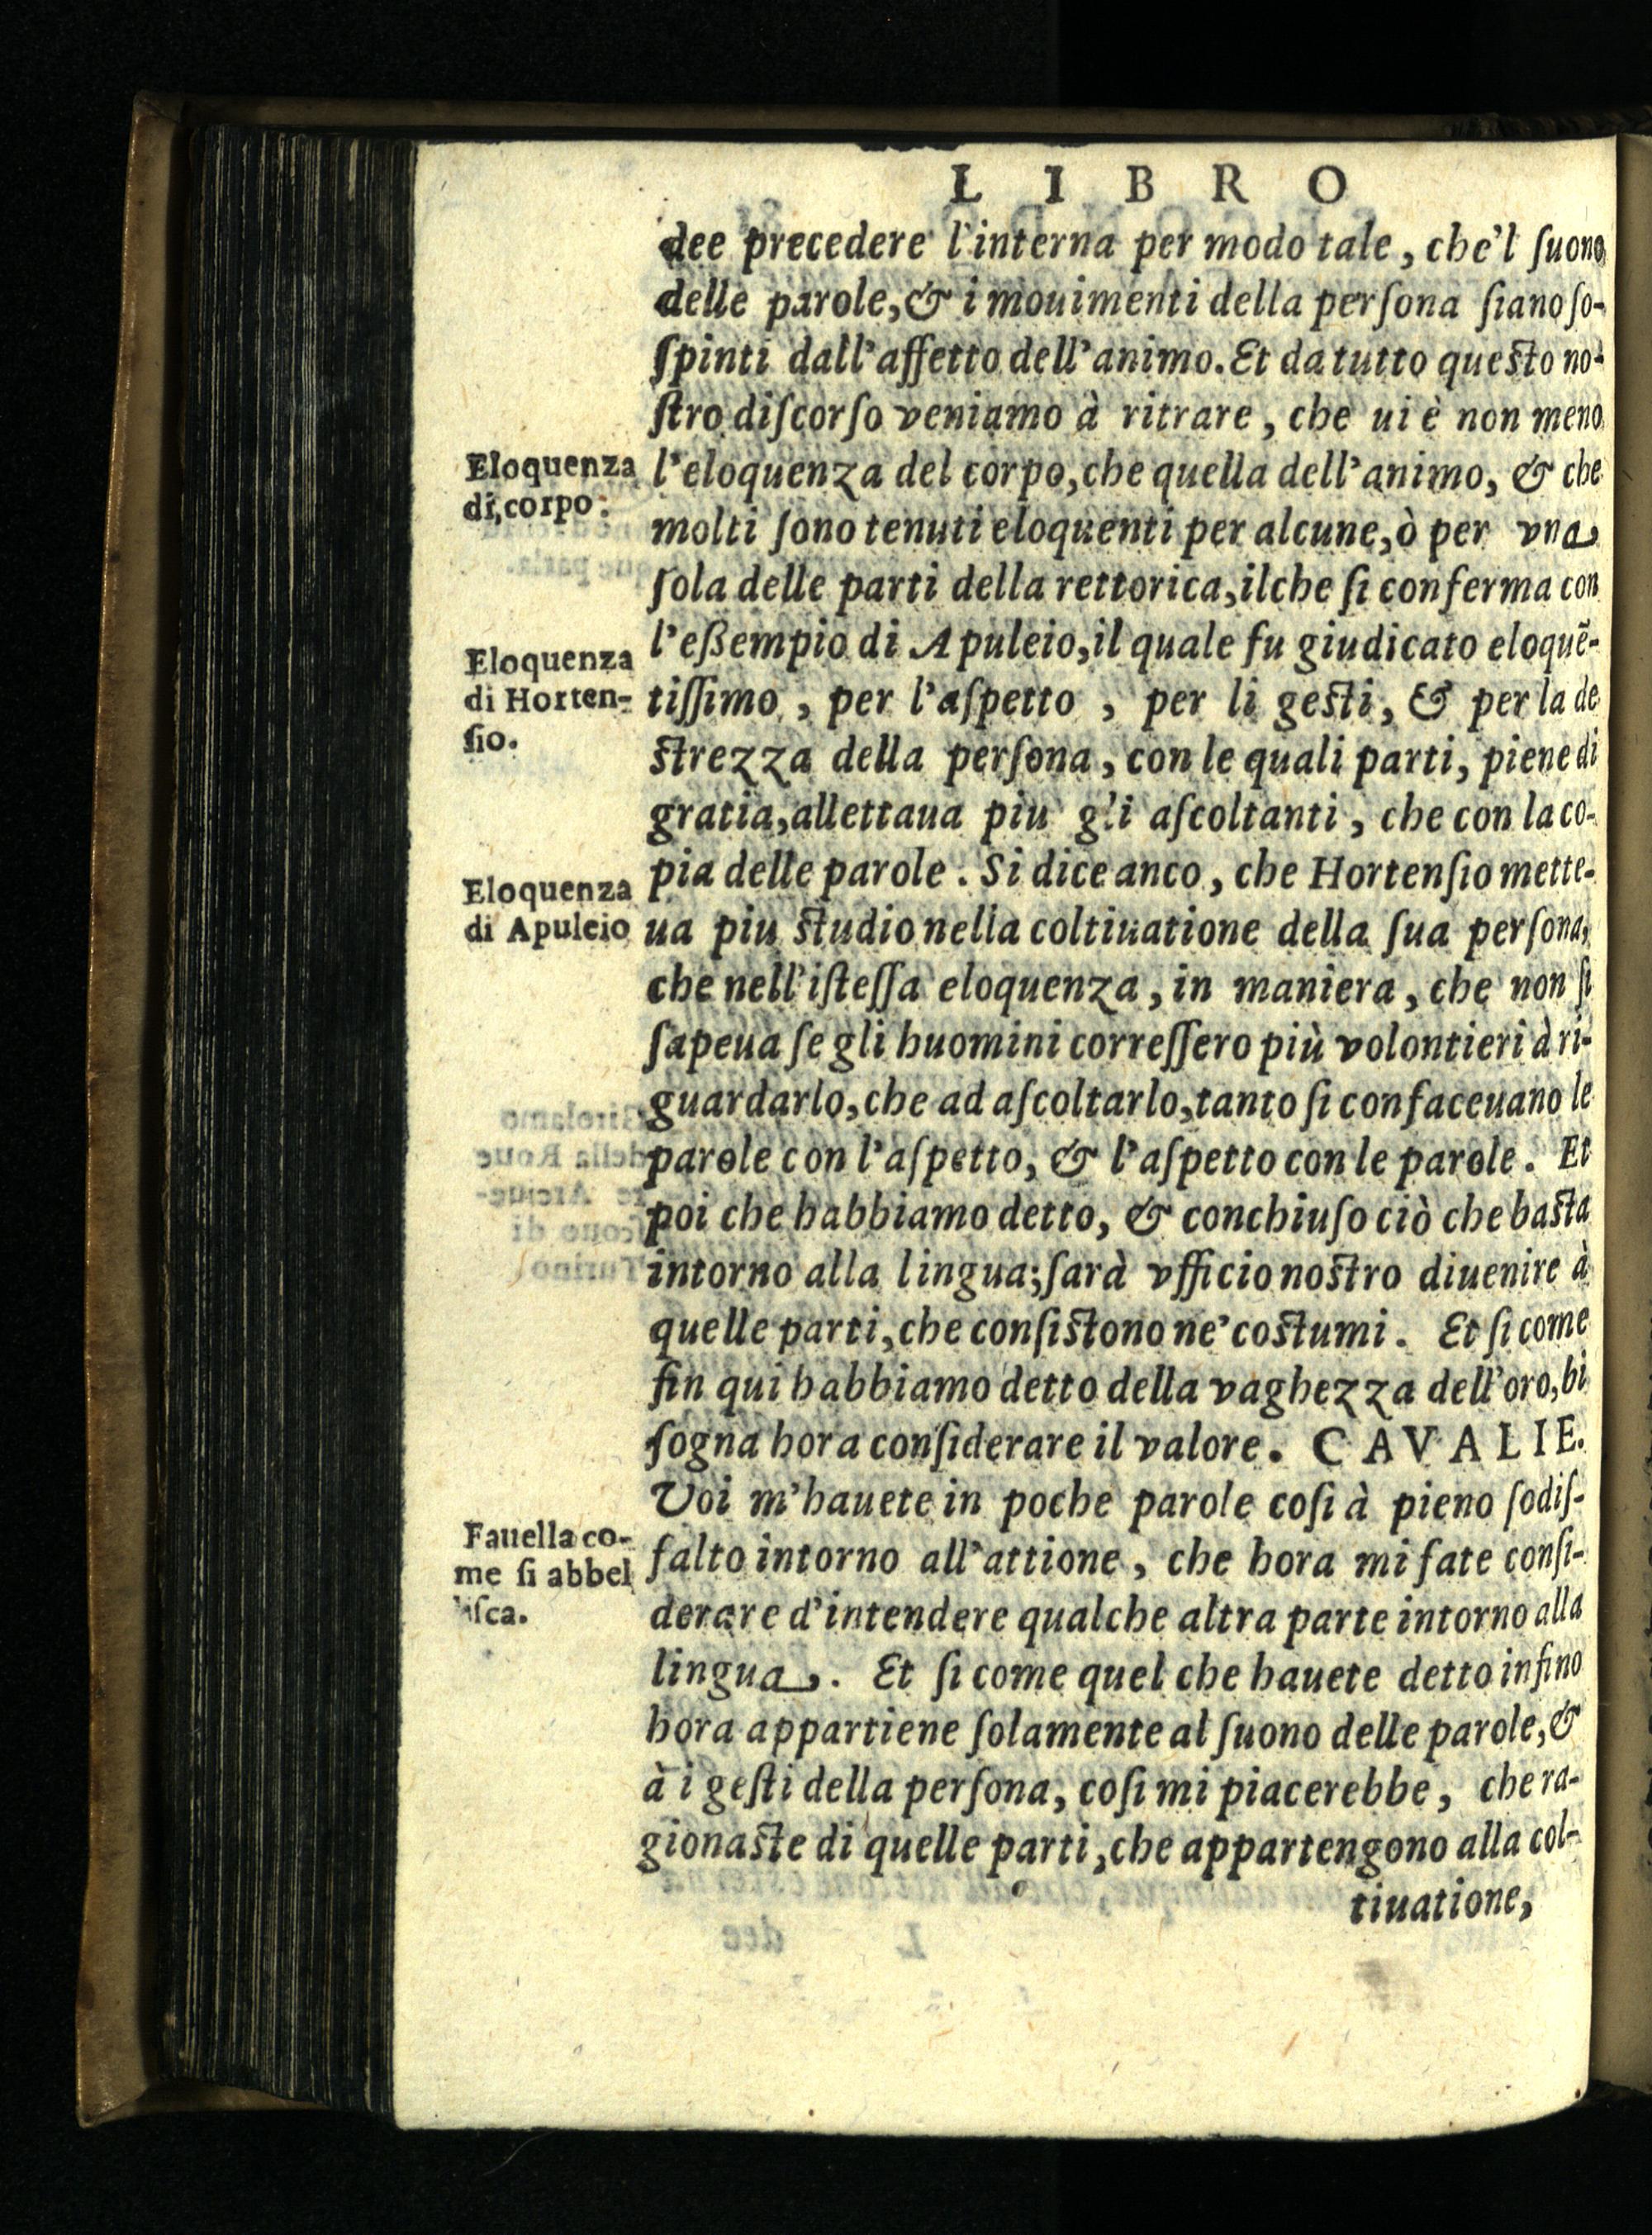 LIBRO
dee precedere l'interna per modo tale, che'l ſuono
delle parole, & i mouimenti della perſona ſiano ſo-
ſpinti dall'affetto dell'animo. Et da tutto queſto no-
ſtro diſcorſo veniamo à ritrare, che ui è non meno
Eloquenza
di corpo.
l'eloquenza del corpo, che quella dell'animo, & che
molti ſono tenuti eloquenti per alcune, ò per vna
ſola delle parti della rettorica, ilche ſi conferma con
l'eßempio di Apuleio, il quale fu giudicato eloquẽ-
Eloquenza
di Horten-
ſio.
tiſſimo, per l'aſpetto, per li geſti, & per la de
ſtrezza della perſona, con le quali parti, piene di
gratia, allettaua piu gli aſcoltanti, che con la co-
pia delle parole. Si dice anco, che Hortenſio mette-
Eloquenza
di Apuleio
ua piu ſtudio nella coltiuatione della ſua perſona,
che nell'iſteſſa eloquenza, in maniera, che non ſi
ſapeua ſe gli huomini correſſero più volontieri à ri-
guardarlo, che ad aſcoltarlo, tanto ſi confaceuano le
parole con l'aſpetto, & l'aſpetto con le parole. Et
poi che habbiamo detto, & conchiuſo ciò che baſta
intorno alla lingua; ſarà vfficio noſtro diuenire à
quelle parti, che conſiſtono ne' coſtumi. Et ſi come
fin qui habbiamo detto della vaghezza dell'oro, bi
ſogna hora conſiderare il valore. CAVALIE.
Voi m'hauete in poche parole coſi à pieno ſodiſ-
Fauella co-
me ſi abbel
liſca.
falto intorno all'attione, che hora mi fate conſi-
derare d'intendere qualche altra parte intorno alla
lingua. Et ſi come quel che hauete detto infino
hora appartiene ſolamente al ſuono delle parole, &
à i geſti della perſona, coſi mi piacerebbe, che ra-
gionaſte di quelle parti, che appartengono alla col-
tiuatione,